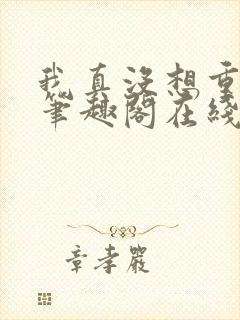 我真没想重
笔趣阁在线
章孝严